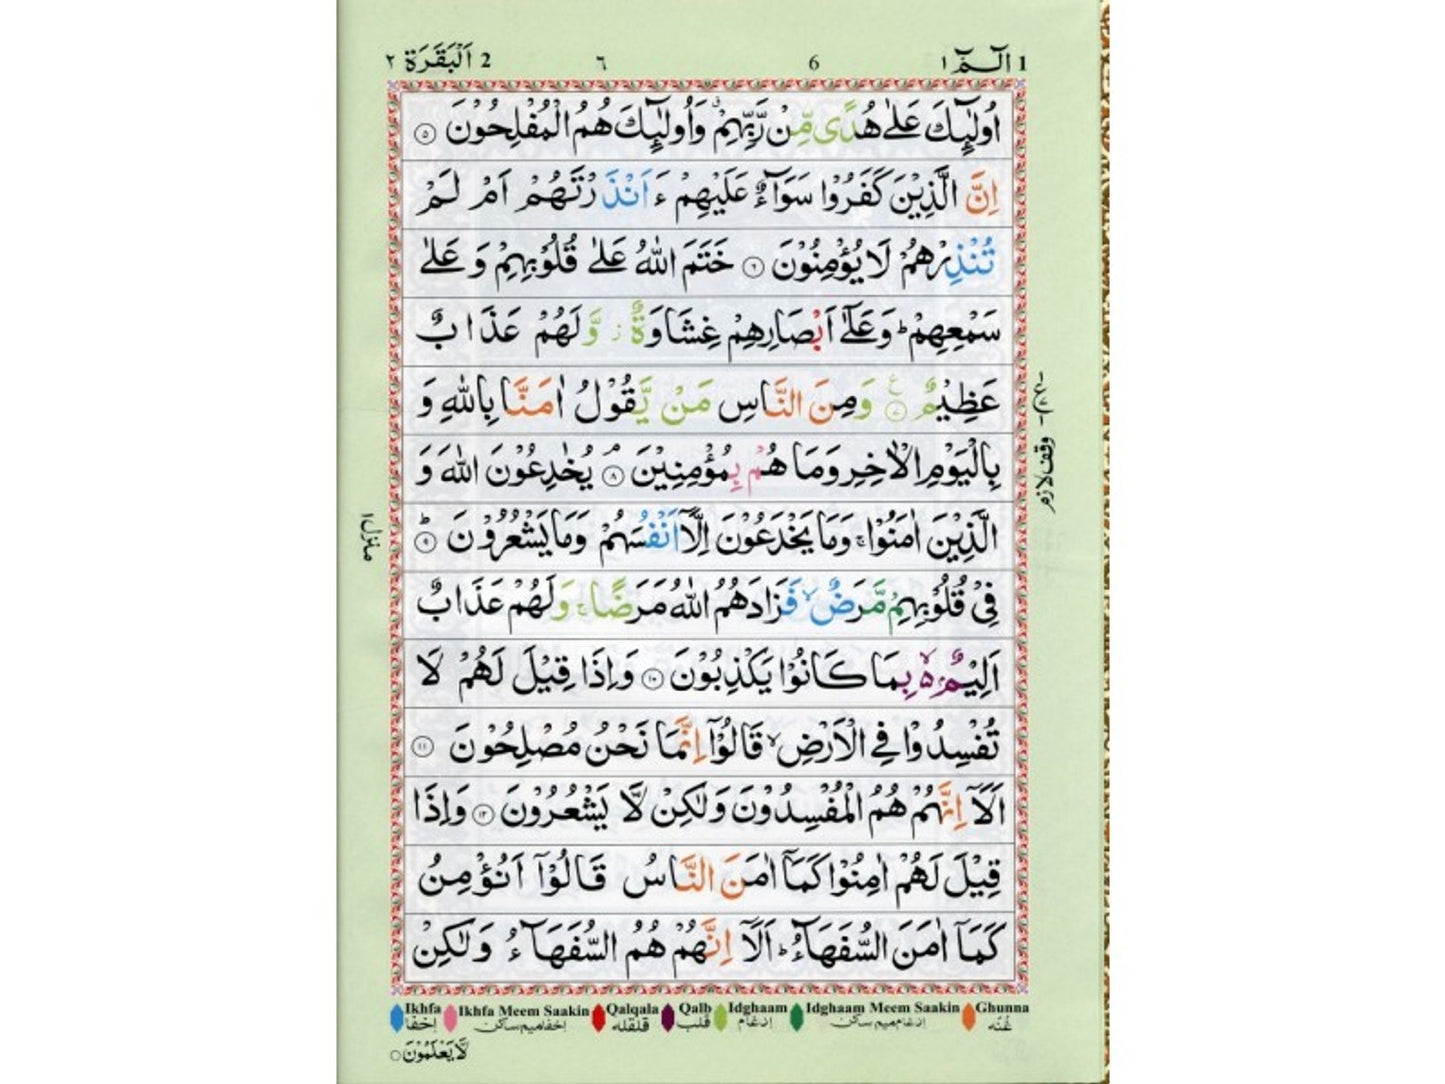 1 الٓـمّٓ ١ 6 ٦ 2 اَلْبَقَرَة ٢
اُولٰٓئِكَ عَلٰى هُدًى مِّنْ رَّبِّهِمْ ۗ وَاُولٰٓئِكَ هُمُ الْمُفْلِحُوْنَ ۝٥
اِنَّ الَّذِيْنَ كَفَرُوْا سَوَآءٌ عَلَيْهِمْ ءَاَنْذَرْتَهُمْ اَمْ لَمْ
تُنْذِرْهُمْ لَا يُؤْمِنُوْنَ ۝٦ خَتَمَ اللّٰهُ عَلٰى قُلُوْبِهِمْ وَ عَلٰى
سَمْعِهِمْ ؕ وَعَلٰٓى اَبْصَارِهِمْ غِشَاوَةٌ ز وَّلَهُمْ عَذَابٌ
عَظِيْمٌ ۝٧ ع وَمِنَ النَّاسِ مَنْ يَّقُوْلُ اٰمَنَّا بِاللّٰهِ وَ
بِالْيَوْمِ الْاٰخِرِ وَمَا هُمْ بِمُؤْمِنِيْنَ ۝٨ۘ يُخٰدِعُوْنَ اللّٰهَ وَ
الَّذِيْنَ اٰمَنُوْا ۚ وَمَا يَخْدَعُوْنَ اِلَّآ اَنْفُسَهُمْ وَمَا يَشْعُرُوْنَ ۝٩ؕ
فِيْ قُلُوْبِهِمْ مَّرَضٌ ۙ فَزَادَهُمُ اللّٰهُ مَرَضًا ۚ وَلَهُمْ عَذَابٌ
اَلِيْمٌ ۢ ۙ بِمَا كَانُوْا يَكْذِبُوْنَ ۝١٠ وَاِذَا قِيْلَ لَهُمْ لَا
تُفْسِدُوْا فِي الْاَرْضِ ۙ قَالُوْٓا اِنَّمَا نَحْنُ مُصْلِحُوْنَ ۝١١
اَلَآ اِنَّهُمْ هُمُ الْمُفْسِدُوْنَ وَلٰكِنْ لَّا يَشْعُرُوْنَ ۝١٢ وَاِذَا
قِيْلَ لَهُمْ اٰمِنُوْا كَمَآ اٰمَنَ النَّاسُ قَالُوْٓا اَنُؤْمِنُ
كَمَآ اٰمَنَ السُّفَهَآءُ ؕ اَلَآ اِنَّهُمْ هُمُ السُّفَهَآءُ وَلٰكِنْ
وقف لازم
منزل ١
Ikhfa Ikhfa Meem Saakin Qalqala Qalb Idghaam Idghaam Meem Saakin Ghunna
اِخفا اِخفا میم ساکن قلقله قلب اِدغام اِدغام میم ساکن غُنّه
لَّا يَعْلَمُوْنَ